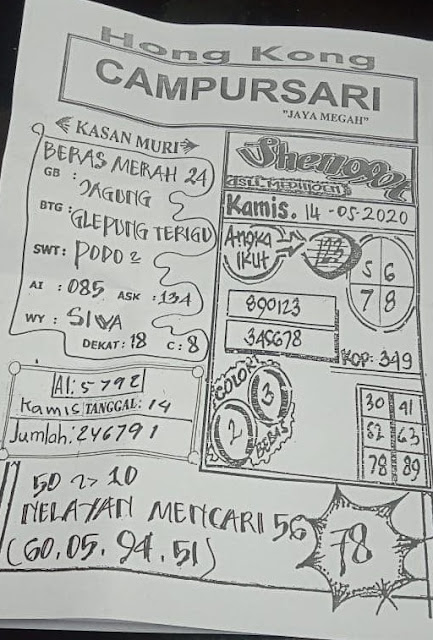 Hong Kong
CAMPURSARI
"JAYA MEGAH"
KASAN MURI
BERAS MERAH 24
GB : JAGUNG
BTG : GLEPUNG TERIGU
SWT : PODO 2
AI : 085 ASK : 134
WY : SIWA
DEKAT : 18 C : 8
AI : 5792
Kamis TANGGAL : 14
Jumlah : 246791
Shenoou
ASLI
Kamis. 14 -05-2020
Angka
IKUT
123
5 6
7 8
890123
345678
KOP: 349
COLOK
3
2
BEBAS
30 41
52 63
78 89
50 2> 10
NELAYAN MENCARI 56
(60.05.94.51)
78